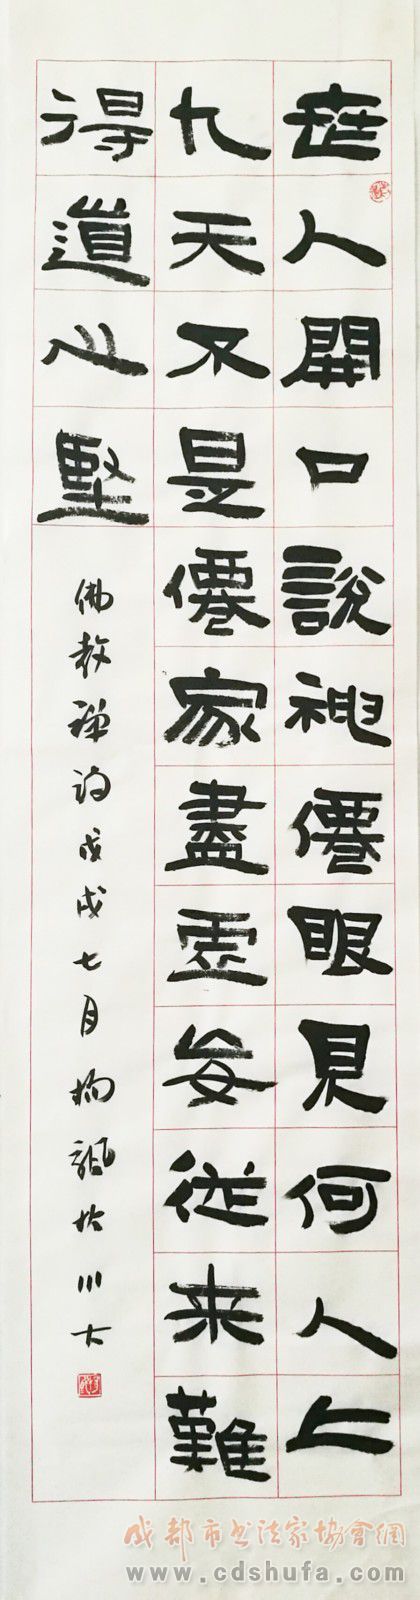 世人開口說神僊眼見何人上
九天不是僊家盡虛妄從来難
得道心堅
佛教禅詩戊戌七月楊於川大
成都市书法家協會網
www.cdshufa.com